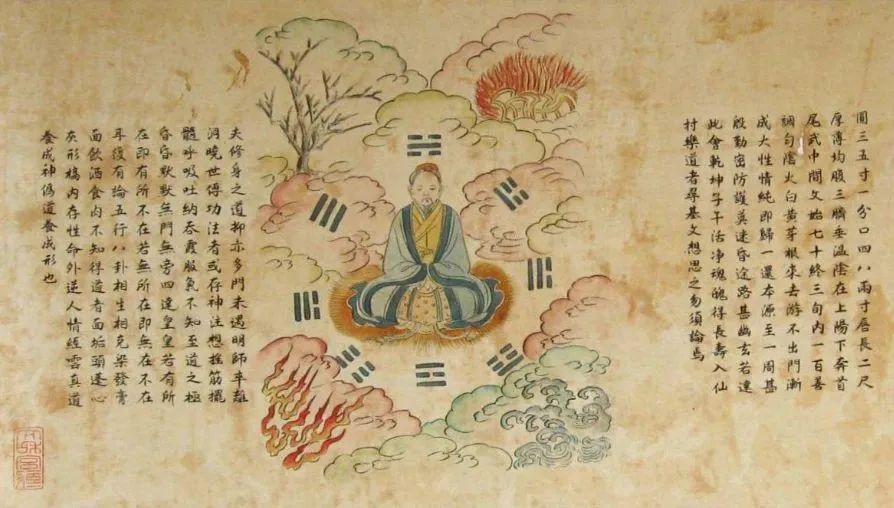 圓三五寸一分口四八兩寸唇長二尺
厚薄均腹三臍垂温陰在上陽下奔首
尾武中間文始七十終三旬内一百善
調勻陰火白黄芽根來去游不出門漸
成大性情純即歸一還本源至一周甚
殷勤密防護莫迷昏途路甚幽玄若達
此會乾坤子干活净魂魄得長壽入仙
村樂道者尋基文想思之勿須論焉
夫修身之道抑亦多門未遇明師卒難
洞曉世傳功法者或存神注想捻筋擺
髓呼吸吐納吞霞服氣不知至道之極
昏昏默默無門無旁四達皇皇若有所
在即有所不在若無所在即無在不在
耳後有論五行八卦相生相克染發膏
面飲酒食肉不知得道者面垢頭蓬心
灰形槁内存性命外逆人情經雲真道
養成神僞道養成形也